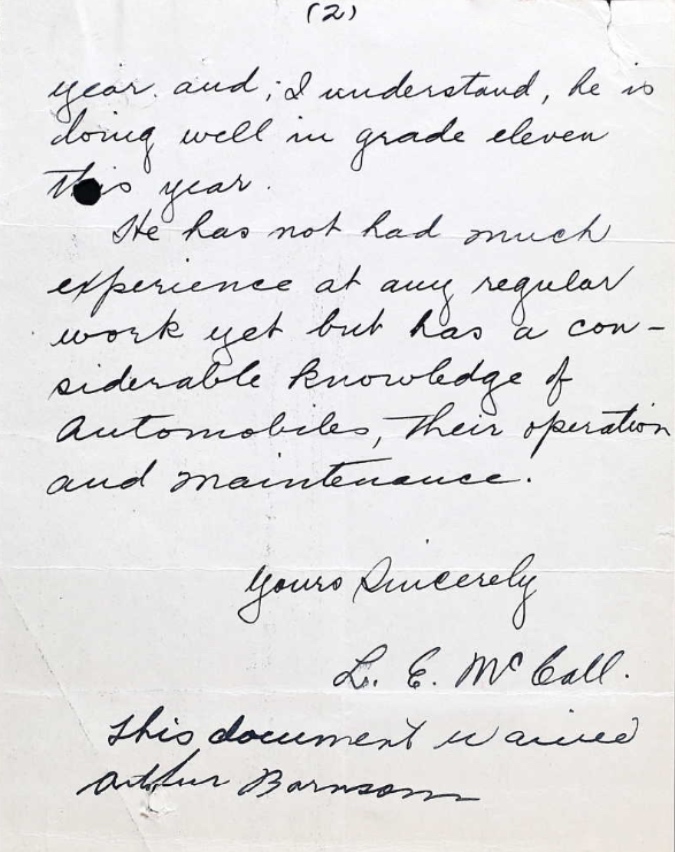 (2)
year. and; I understand, he is
doing well in grade eleven
this year.
He has not had much
experience at any regular
work yet but has a con-
siderable knowledge of
Automobiles, their operation
and maintenance.
Yours Sincerely
L. E. McCall.
This document waived
Arthur